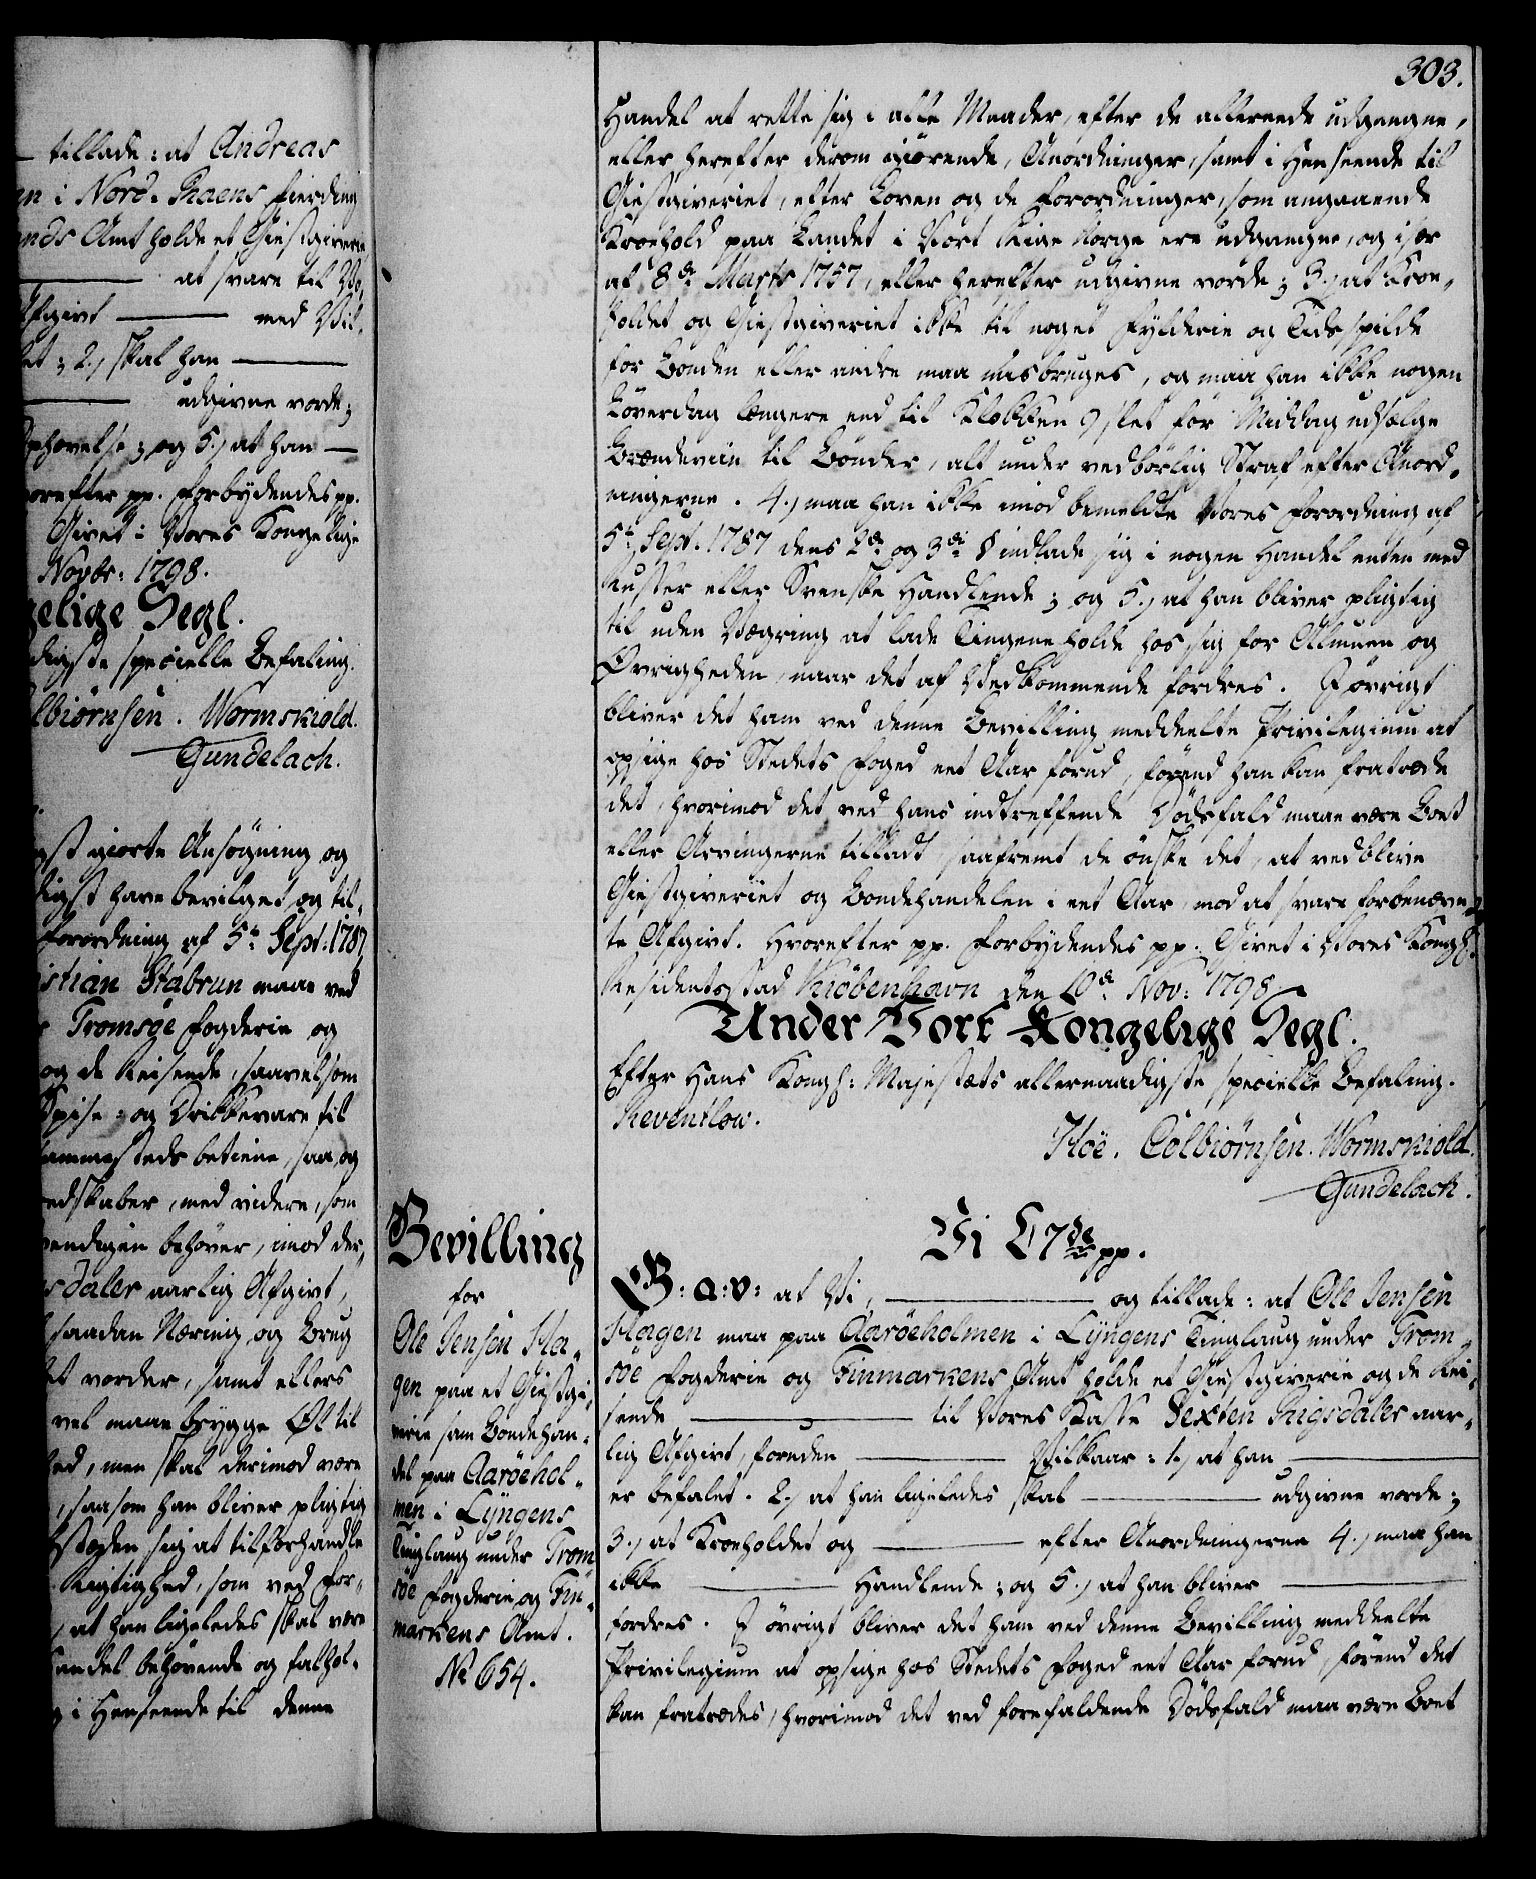 tillade: at Andreas
i Nord-Ranens Fierding
Amt holde et Giestgiverie
at svare til Vo-
Afgivt med Vil-
2.) skal han
udgivne vorde;
Ophævelse; og 5.) at han
pp. Forbydendes pp.
Givet i Vores Kongelige
Novbr: 1798.
Segl.
specielle Befaling.
Wormskiold.
Gundelach.
giorte Ansøgning og
have bevilget og til-
Forordning af 5te Sept. 1787
Stabrun maae ved
Tromsøe Fogderie og
og de Reisende, saavelsom
Spise- og Drikkevare til
betiene, saa og
med videre, som
behøver, imod der-
aarlig Afgivt,
saadan Næring og Brug
vorder, samt ellers
vel maae brygge Øl til
men skal derimod være
saasom han bliver pligtig
sig at tilforhandle
Rigtighed, som ved For-
at han ligeledes skal være
Handel behørende og falhol-
i Henseende til denne
303.
Handel at rette sig i alle Maader, efter de allereede udgangne,
eller herefter derom giørende, Anordninger, samt i Henseende til
Giestgiveriet, efter Loven og de Forordninger, som angaaende
Kroehold paa Landet i Vort Rige Norge ere udgangne, og især
af 8de Marts 1757, eller herefter udgivne vorde; 3.) at Kroe-
holdet og Giestgiveriet ikke til noget Fylderie og Tids spilde
for Bonden eller andre maa misbruges, og maa han ikke nogen
Løverdag længere end til Klokken 9 slet for Middag udsælge
Brændeviin til Bønder, alt under vedbørlig Straf efter Anord-
ningerne. 4.) maa han ikke imod bemeldte Vores Forordning af
5te Sept. 1787 dens 2de og 3die § indlade sig i nogen Handel enten med
Russer eller Svenske Handlende; og 5.) at han bliver pligtig
til uden Vægring at lade Tingene holde hos sig for Almuen og
Øvrigheden, naar det af Vedkommende fordres. I øvrigt
bliver det ham ved denne Bevilling meddeelte Privilegium at
opsige hos Stedets Foged eet Aar forud, førend han kan fratræde
det, hvorimod det ved hans indtreffende Dødsfald maae være Boet
eller Arvingerne tilladt, saafremt de ønske det, at vedblive
Giestgiveriet og Bondehandelen i eet Aar, mod at svare forbenævn-
te Afgivt. Hvorefter pp. Forbydendes pp. Givet i Vores Kongl:
Residentsstad Kiøbenhavn den Nov: 1798.
Under Vort Kongelige Segl.
Efter Hans Kongl: Majestæts allernaadigste specielle Befaling.
Reventlow.
Hoë. Colbiørnsen. Wormskiold.
Gundelach.
Bevilling
for
Ole Jensen Ha-
gen paa et Giestgi-
verie sam Bondehan-
del paa Aarøehol-
men i Lyngens
Tinglaug under Trom-
søe Fogderie og Fin-
markens Amt.
No 654.
Vi C7de pp.
G: a: v: at Vi, og tillade: at Ole Jensen
Hagen maa paa Aarøeholmen i Lyngens Tinglaug under Trom-
søe Fogderie og Finmarkens Amt holde et Giestgiverie og de Rei-
sende til Vores Kasse Sexten Rigsdaler aar-
lig Afgivt, foruden Vilkaar: 1.) at han
er befalet. 2.) at han ligeledes skal udgivne vorde;
3.) at Kroeholdet og efter Anordningerne 4.) maa han
ikke Handlende; og 5.) at han bliver
fordres. I øvrigt bliver det ham ved denne Bevilling meddeelte
Privilegium at opsige hos Stedets Foged eet Aar forud, førend det
kan fratrædes, hvorimod det ved forefaldende Dødsfald maa være Boet